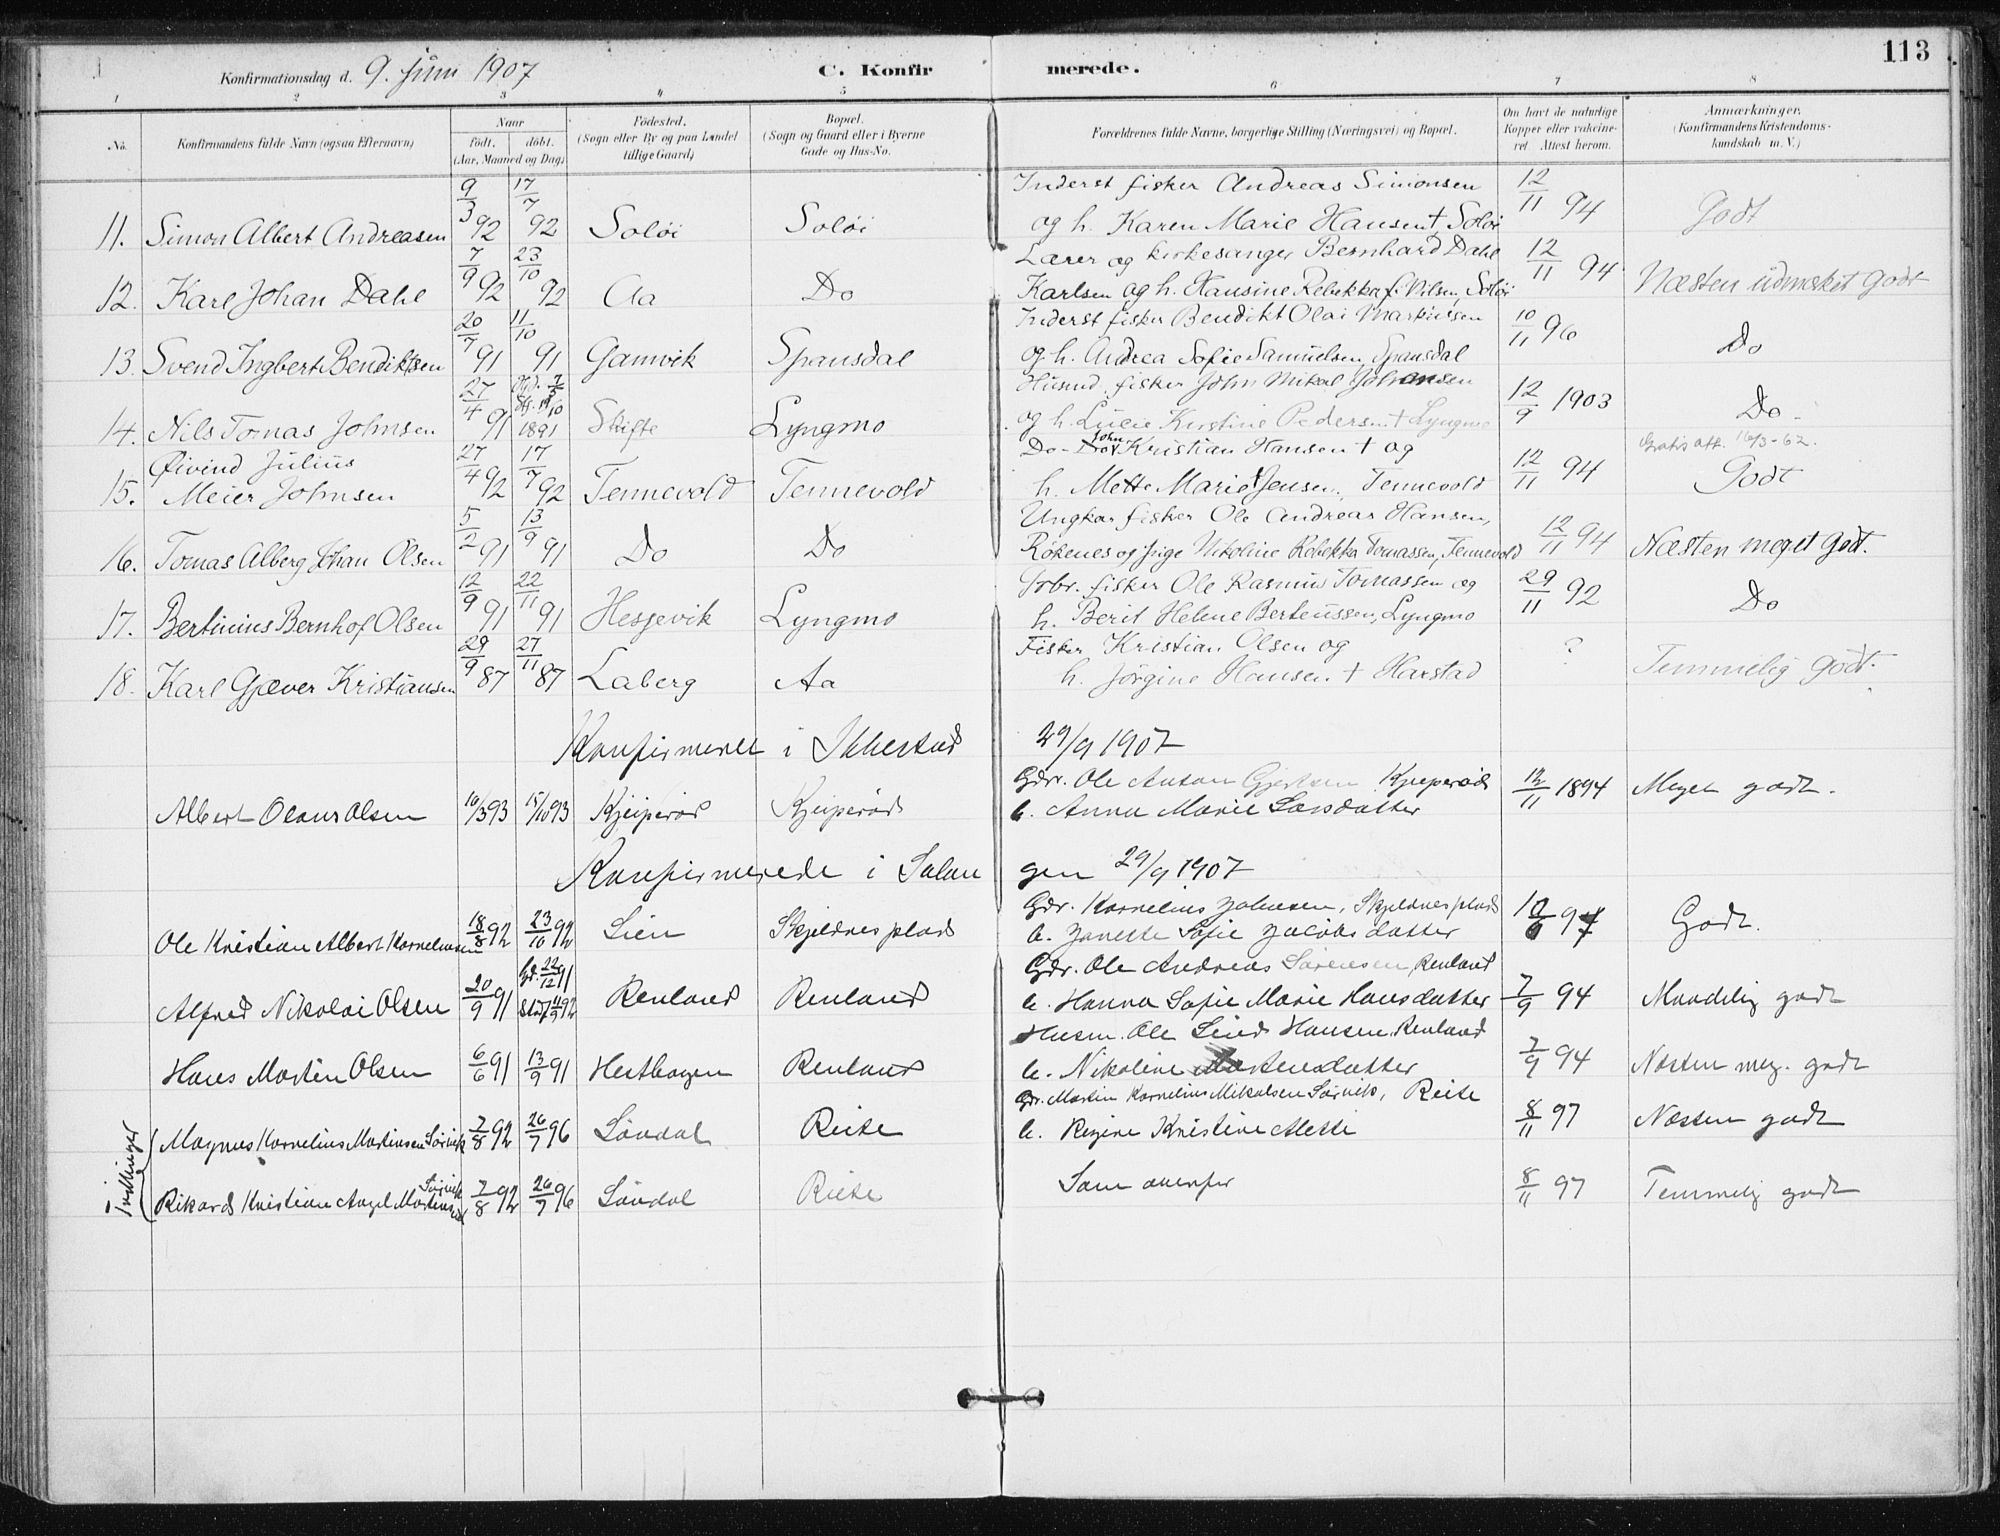 113
Konfirmationsdag d. 9. juni 1907 C. Konfirmerede.
1 2 3 4 5 6 7 8
No. Konfirmandens fulde Navn (ogsaa Efternavn) Naar født. døbt. (Aar, Maaned og Dag) Fødested. (Sogn eller By og paa Landet tillige Gaard) Bopæl. (Sogn og Gaard eller i Byerne Gade og Hus-No. Forældrenes fulde Navne, borgerlige Stilling (Næringsvei) og Bopæl. Om havt de naturlige Kopper eller vakcineret Attest herom. Anmærkninger. (Konfirmandens Kristendomskundskab m. V.)
Inderst fisker Andreas Simonsen
11. Simon Albert Andreasen 9/3 92 17/7 92 Soløi Soløi og h. Karen Marie Hansen + Soløi 12/11 94 Godt
Lærer og kirkesanger Bernhard Dahl
12. Karl Johan Dahl 7/9 92 23/10 92 Aa Do Karlsen og h. Hansine Rebekka f. Nilsen, Soløi 12/11 94 Næsten udmærket godt
Inderst fisker Bendikt Olai Markusen
13. Svend Ingbert Bendiktsen 20/7 91 11/10 91 Gamvik Spansdal og h. Andrea Sofie Samuelsen, Spansdal 10/11 96 Do
Husmd. fisker John Mikal Johansen
14. Nils Tomas Johnsen 27/4 91 1891 Skifte Lyngmo og h. Lucie Kirstine Pedersen + Lyngmo 12/9 1903 Do
Gratis att. 16/3-62.
Øivind Julius Do - John Kristian Hansen + og
15. Meier Johnsen 27/4 92 17/7 92 Tennevold Tennevold h. Mette Marie Jensen, Tennevold 12/11 94 Godt
Ungkar fisker Ole Andreas Hansen,
16. Tomas Alberg Johan Olsen 5/2 91 13/9 91 Do Do Røkenes og pige Nikoline Rebekka Tomassen, Tennevold 12/11 94 Næsten meget godt.
fisker Ole Rasmus Tomassen og
17. Bertinius Bernhof Olsen 12/9 91 22/11 91 Hesjevik Lyngmo h. Berit Helene Berteussen, Lyngmo 29/11 92 Do
Fisker Kristian Olsen og
18. Karl Gjæver Kristiansen 29/9 87 27/11 87 Laberg Aa h. Jørgine Hansen + Harstad ? Temmelig godt.
Konfirmeret i Ibbestad 29/9 1907
Gdr. Ole Anton Gjertsen Kjeiperød
Albert Olaus Olsen 16/3 93 15/10 93 Kjeiperød Kjeiperød h. Anna Marie Larsdatter 12/11 1894 Meget godt.
Konfirmerede i Salangen 29/9 1907
Gdr. Kornelius Johnsen, Skjeldnesplads
Ole Kristian Albert Korneliussen 18/8 92 23/10 92 Lien Skjeldnesplads h. Janette Sofie Jacobsdatter 97 Godt.
Gdr. Ole Andreas Sørensen, Renland
Alfred Nikolai Olsen 20/9 91 22/12 91 Renland Renland h. Hanna Sofie Marie Hansdatter 7/9 94 Maadelig godt
Husm. Ole Hansen Renland
Hans Martin Olsen 6/6 91 13/9 91 Hesthagen Renland h. Nikoline Mortensdatter 7/9 94 Næsten meg. godt
Gdr. Martin Kornelius Mikalsen Sørvik, Reite
Magnus Kornelius Martinsen Sørvik 7/8 92 26/7 96 Løvdal Reite h. Regine Kristine Alette 8/11 97 Næsten godt
Tvillinger
Rikard Kristian Angel Martinsen Sørvik 7/8 92 26/7 96 Løvdal Reite Som ovenfor 8/11 97 Temmelig godt